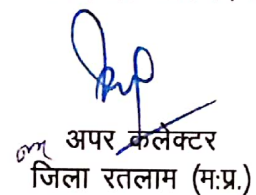 अपर कलेक्टर
जिला रतलाम (म:प्र.)